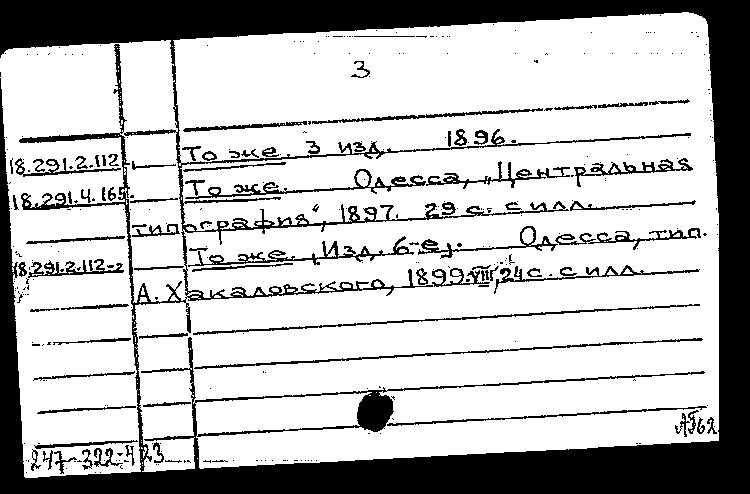 3
18.291.2.112-1 То же. 3 изд. 1896.
18.291.4.165. То же. Одесса, „Центральная
типография“, 1897. 29 с. с илл.
18.291.2.112-2 То же. [Изд. 6-е]. Одесса, тип.
А. Хакаловского, 1899. VIII, 24 с. с илл.
247-322-4 23